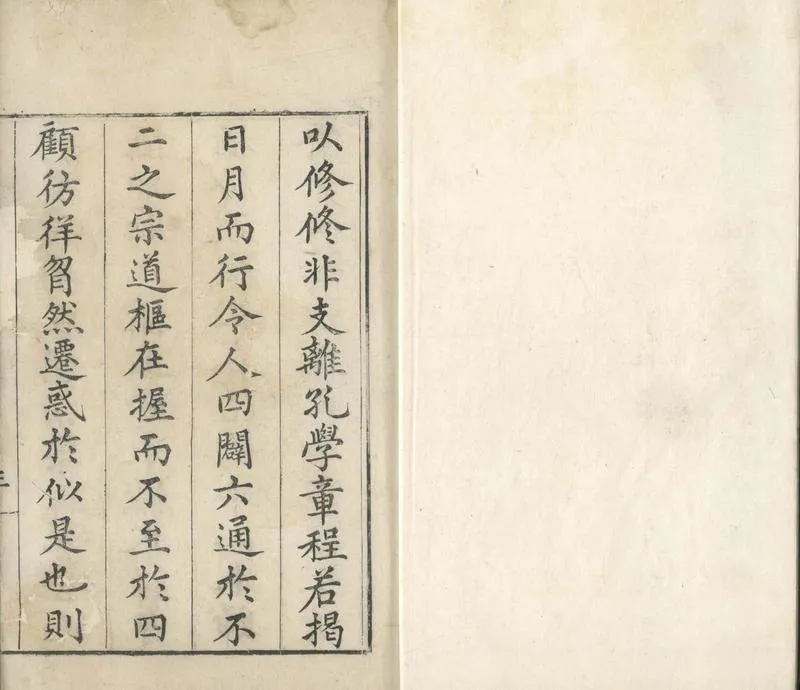 以修修非支離孔學章程若揭
日月而行令人四闢六通於不
二之宗道樞在握而不至於四
顧彷徉曶然遷惑於似是也則